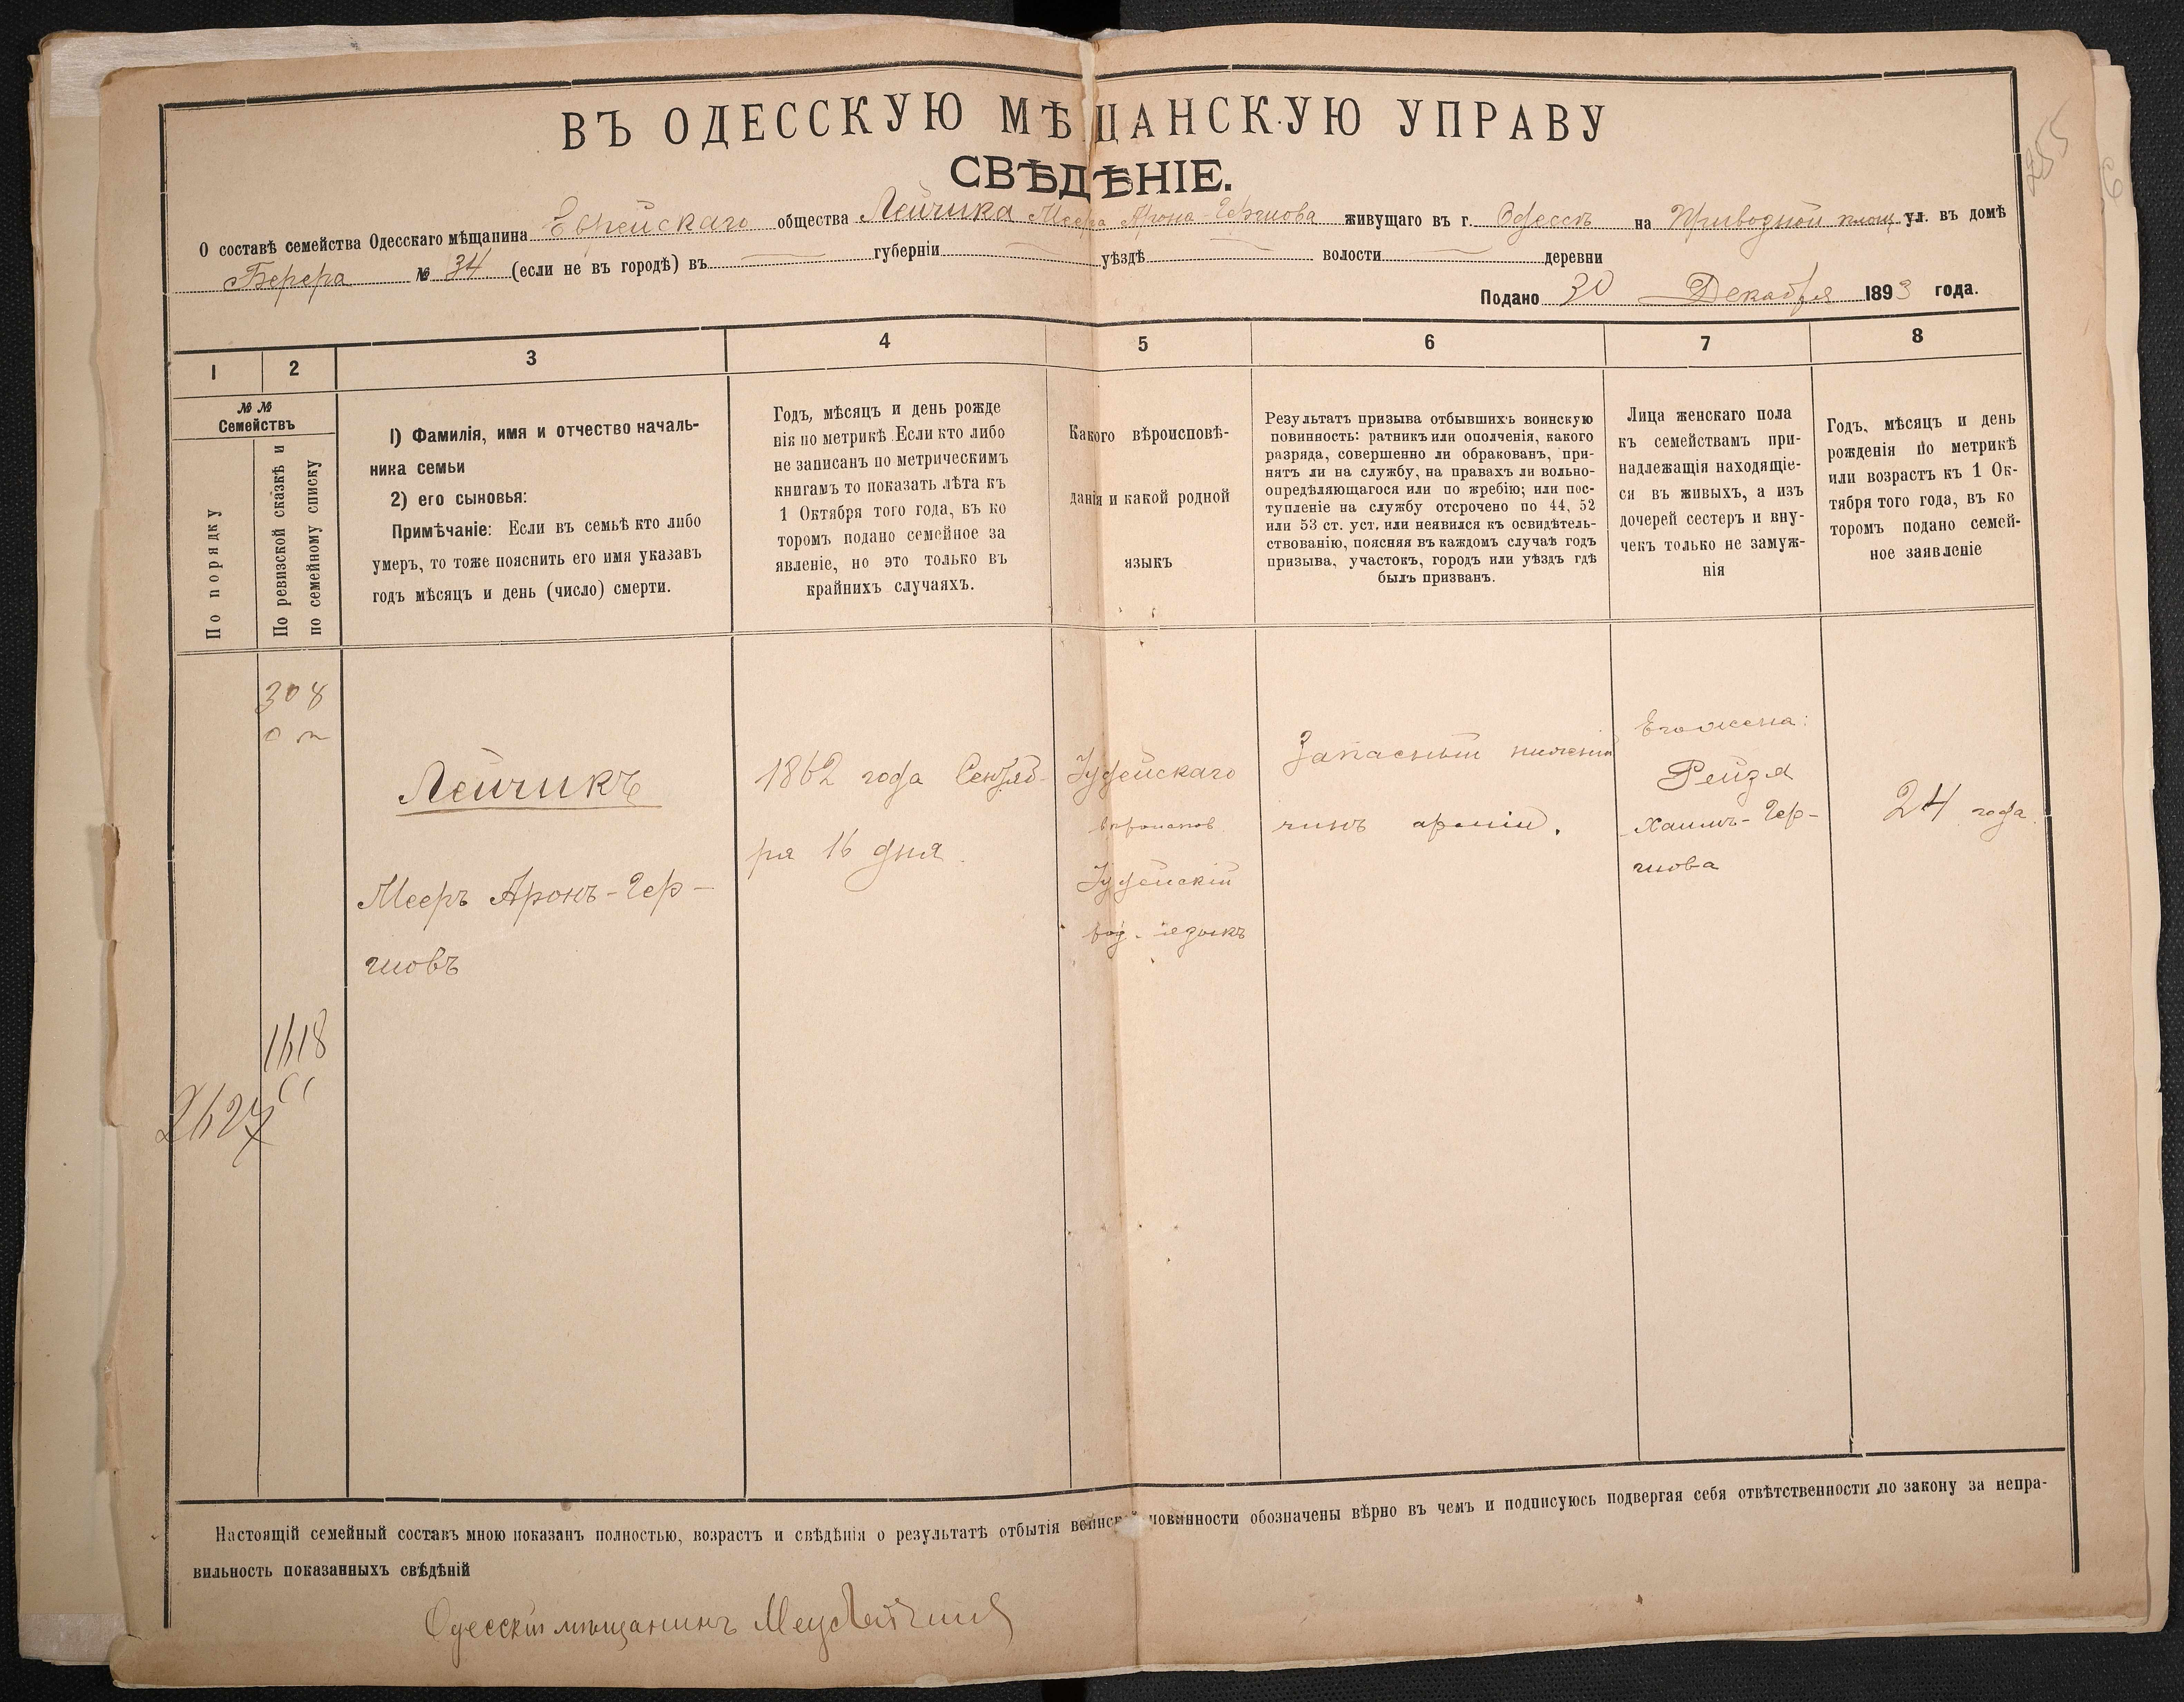 ВЪ ОДЕССКУЮ МѢЩАНСКУЮ УПРАВУ
СВѢДѢНІЕ.
О составѣ семейства Одесскаго мѣщанина Еврейскаго общества Лейчика Меера Арона-Гершова живущаго въ г. Одессѣ на Привозной площ ул. въ домѣ
№ 34 (если не въ городѣ) въ губерніи уѣздѣ волости деревни
Подано 30 Декабря 1893 года.
1 2 3 4 5 6 7 8
№ №
Семействъ
По порядку
По ревизской сказкѣ и
по семейному списку
1) Фамилія, имя и отчество началь-
ника семьи
2) его сыновья:
Примѣчаніе: Если въ семьѣ кто либо
умеръ, то тоже пояснить его имя указавъ
годъ мѣсяцъ и день (число) смерти.
Годъ, мѣсяцъ и день рожде
нія по метрикѣ. Если кто либо
не записанъ по метрическимъ
книгамъ то показать лѣта къ
1 Октября того года, въ ко
торомъ подано семейное за
явленіе, но это только въ
крайнихъ случаяхъ.
Какого вѣроисповѣ-
данія и какой родной
языкъ
Результатъ призыва отбывшихъ воинскую
повинность: ратникъ или ополченія, какого
разряда, совершенно ли обракованъ, при-
нятъ ли на службу, на правахъ ли вольно-
опредѣляющагося или по жребію; или пос-
тупленіе на службу отсрочено по 44, 52
или 53 ст. уст. или неявился къ освидѣтель-
ствованію, поясняя въ каждомъ случаѣ годъ
призыва, участокъ, городъ или уѣздъ гдѣ
былъ призванъ.
Лица женскаго пола
къ семействамъ при-
надлежащія находящіе-
ся въ живыхъ, а изъ
дочерей сестеръ и вну-
чекъ только не замуж-
нія
Годъ, мѣсяцъ и день
рожденія по метрикѣ
или возрастъ къ 1 Ок-
тября того года, въ ко
торомъ подано семей-
ное заявленіе
308
Лейчикъ
Мееръ Аронъ-Гер-
шовъ
1862 года Сентяб-
ря 16 дня.
Іудейскаго
вѣроисповѣ
Іудейскій
род. языкъ
Запасный нижній
чинъ арміи.
Его жена:
Рейзя
Хаимъ-Гер-
шова
24 года.
1618
2627
Настоящій семейный составъ мною показанъ полностью, возрастъ и свѣдѣнія о результатѣ отбытія воинской повинности обозначены вѣрно въ чемъ и подписуюсь подвергая себя отвѣтственности по закону за непра-
вильность показанныхъ свѣдѣній
Одесскій мѣщанинъ
255